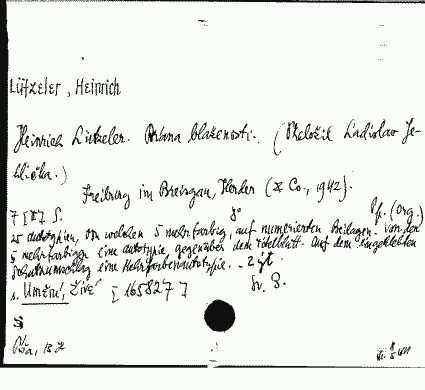 Lützeler, Heinrich
Heinrich Lützeler. Brána blaženosti. (Přeložil Ladislav Je-
hlička.)
Freiburg im Breisgau, Herder (& Co., 1942).
7 [*] S. 8° Pp. (Org.)
25 autotypien, von welchen 5 mehrfarbig, auf numerierten Beilagen. Von den
5 mehrfarbigen eine autotypie, gegenüber dem Titelblatt. Auf dem eingeklebten
Schutzumschlag eine Mehrfarbenautotypie. - 2 
s. Umění, Živé [165827] Sv. 
S